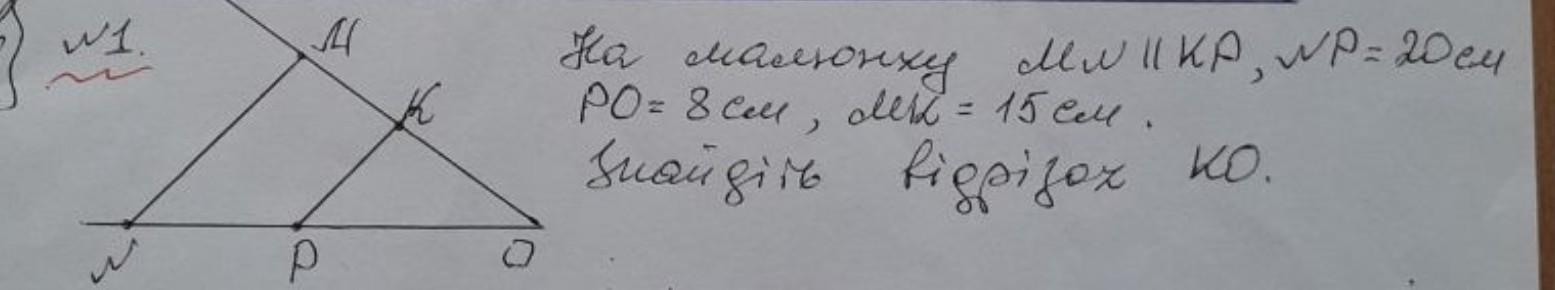 №1.
На малюнку MN || KP, NP = 20 см
PO = 8 см, MK = 15 см.
Знайдіть відрізок KO.
M
K
N
P
O